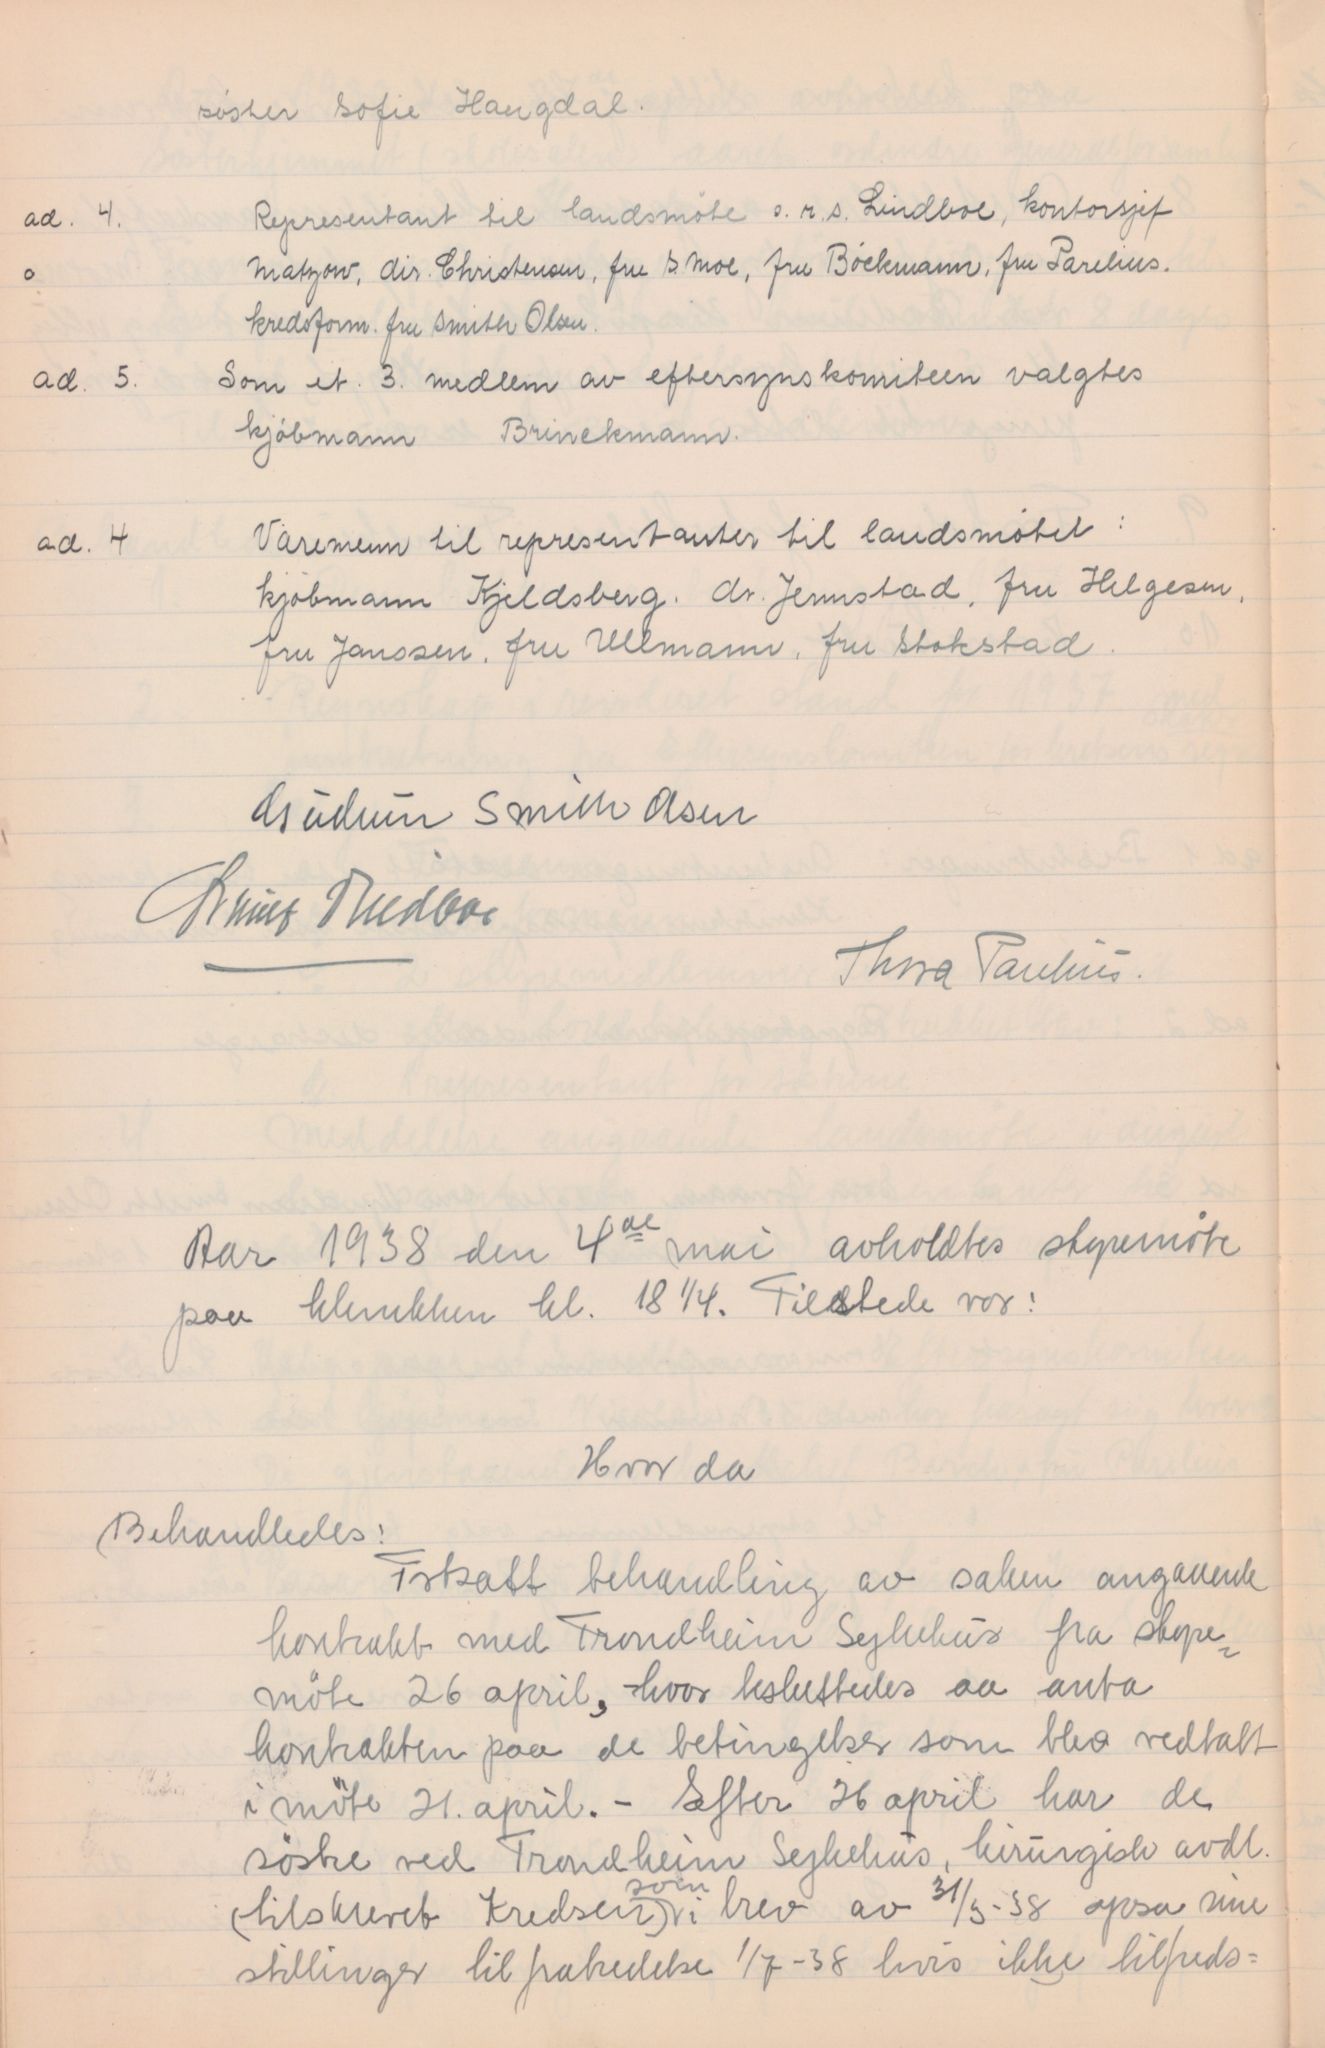 søster Sofie Haugdal.
ad. 4. Representant til landsmöte o.r.s. Lindboe, kontorsjef
Matzow, dir. Christensen, fru S. Moe, fru Böckmann, fru Parelius.
kredsform. fru Smith Olsen.
ad. 5. Som et. 3. medlem av eftersynskomiteen valgtes
kjöbmann Brinckmann.
ad. 4 Varemenn til representanter til landsmötet :
kjöbmann Kjeldsberg. dr. Jennstad, fru Helgesen,
fru Janssen, fru Ullmann, fru Stokstad.
Gudrun Smith Olsen
Lindboe
Thora Parelius.
Aar 1938 den 4de mai avholdtes styremöte
paa klinikken kl. 18 1/4. Tilstede var:
Hvor da
Behandledes:
Fortsatt behandling av saken angaaende
kontrakt med Trondheim Sykehus fra styre=
möte 26 april, hvor besluttedes aa anta
kontrakten paa de betingelser som blev vedtatt
i möte 21. april. - Efter 26 april har de
söstre ved Trondheim Sykehus, kirurgisk avdl.
(tilskrevet Kredsen) som i brev av 31/3-38 opsa sine
stillinger til fratredelse 1/7-38 hvis ikke tilfreds=